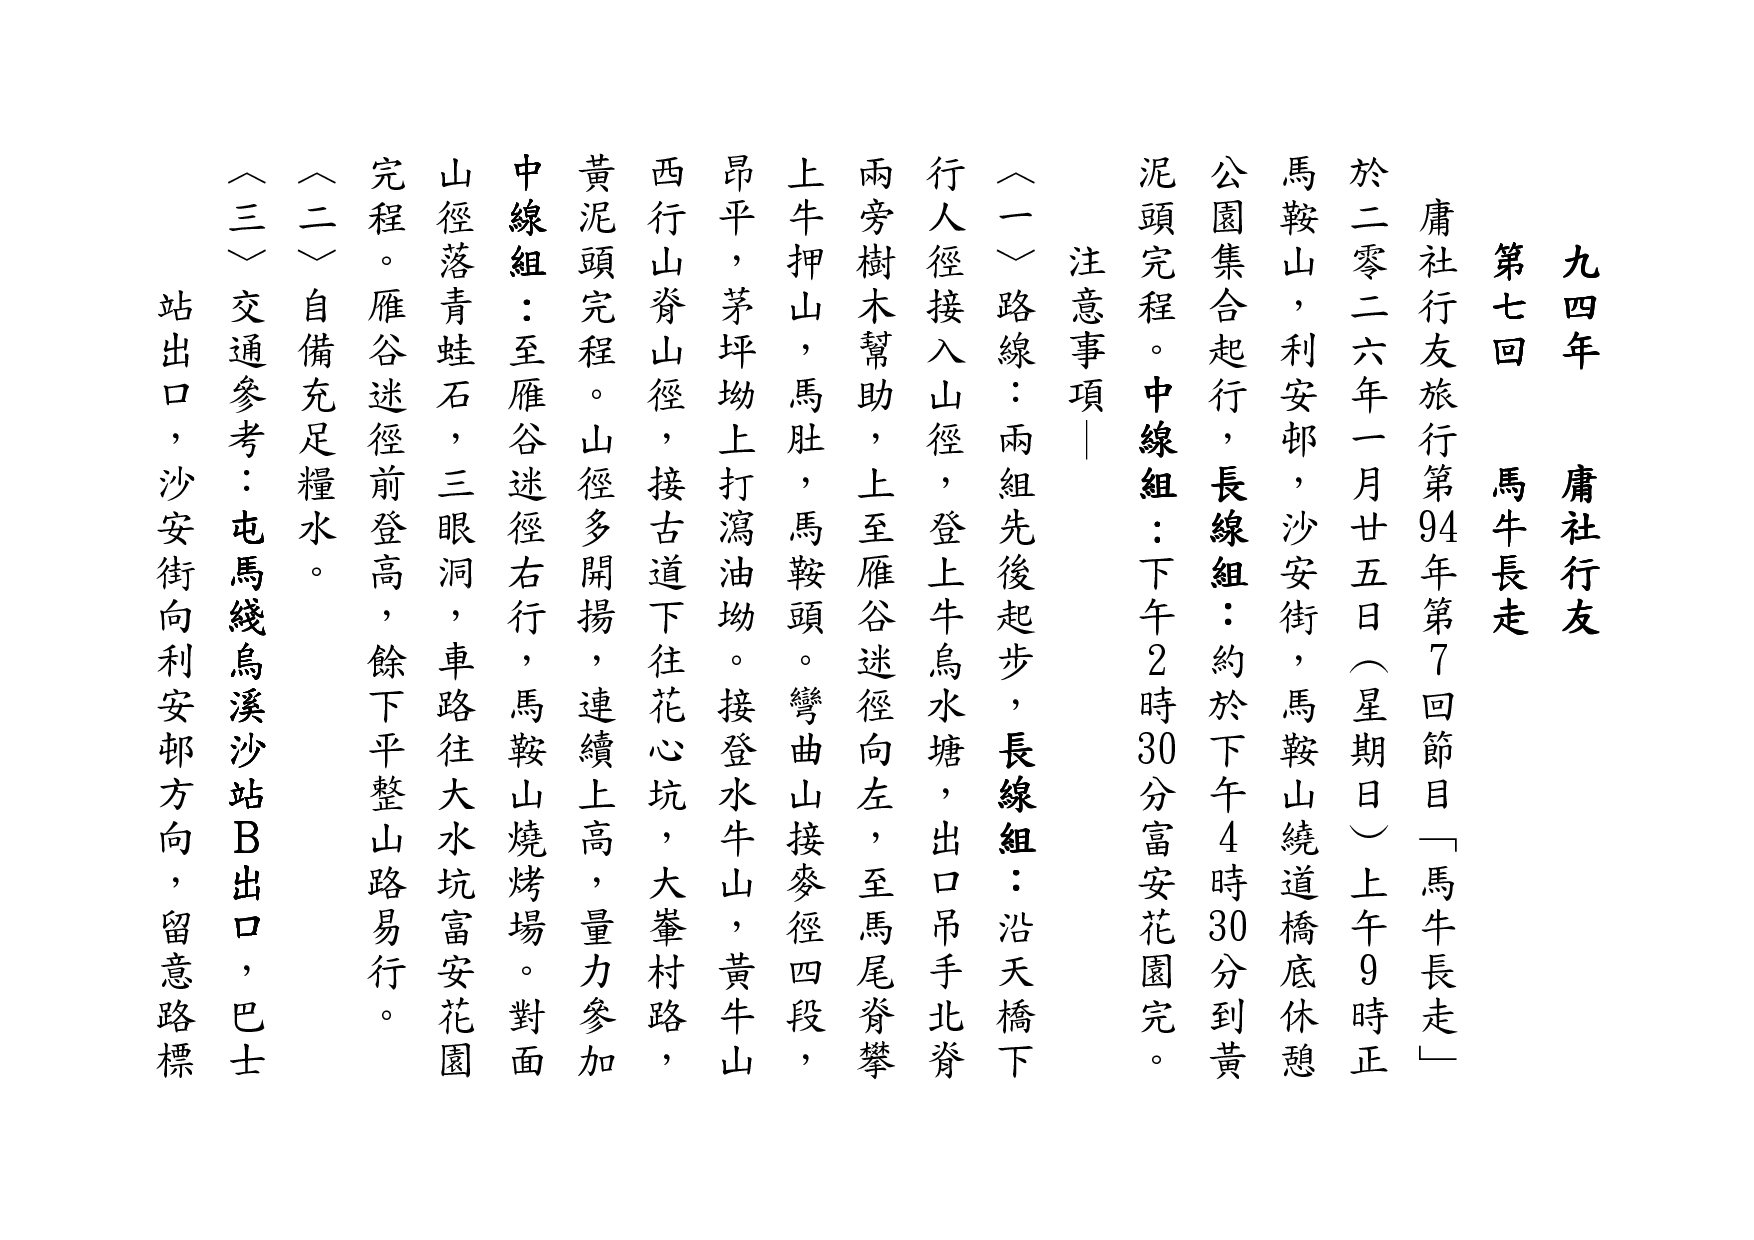 九四年　　庸社行友
第七回　　馬牛長走
庸社行友旅行第94年第7回節目「馬牛長走」
於二零二六年一月廿五日（星期日）上午9時正
馬鞍山，利安邨，沙安街，馬鞍山繞道橋底休憩
公園集合起行，長線組：約於下午4時30分到黃
泥頭完程。中線組：下午2時30分富安花園完。
注意事項—
（一）路線：兩組先後起步，長線組：沿天橋下
行人徑接入山徑，登上牛烏水塘，出口吊手北脊
兩旁樹木幫助，上至雁谷迷徑向左，至馬尾脊攀
上牛押山，馬肚，馬鞍頭。彎曲山接麥徑四段，
昂平，茅坪坳上打瀉油坳。接登水牛山，黃牛山
西行山脊山徑，接古道下往花心坑，大輋村路，
黃泥頭完程。山徑多開揚，連續上高，量力參加
中線組：至雁谷迷徑右行，馬鞍山燒烤場。對面
山徑落青蛙石，三眼洞，車路往大水坑富安花園
完程。雁谷迷徑前登高，餘下平整山路易行。
（二）自備充足糧水。
（三）交通參考：屯馬綫烏溪沙站Ｂ出口，巴士
站出口，沙安街向利安邨方向，留意路標